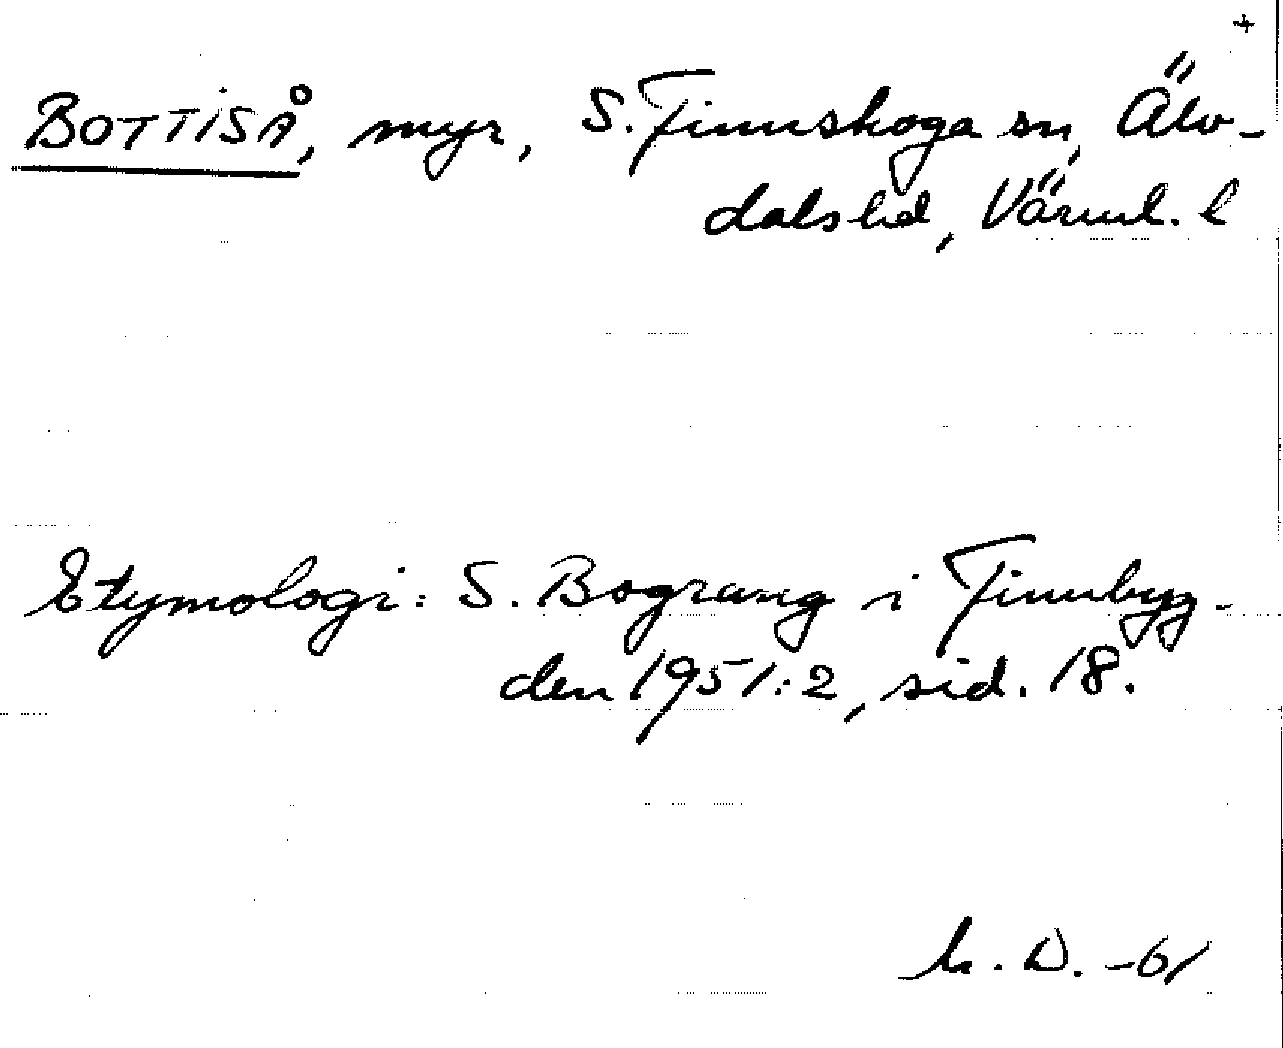 +
BOTTISÅ, myr, S. Finnskoga sn, Älv-
dals hd, Värml. l
Etymologi: S. Bograng i Finnbyg-
den 1951:2, sid. 18.
D. -61